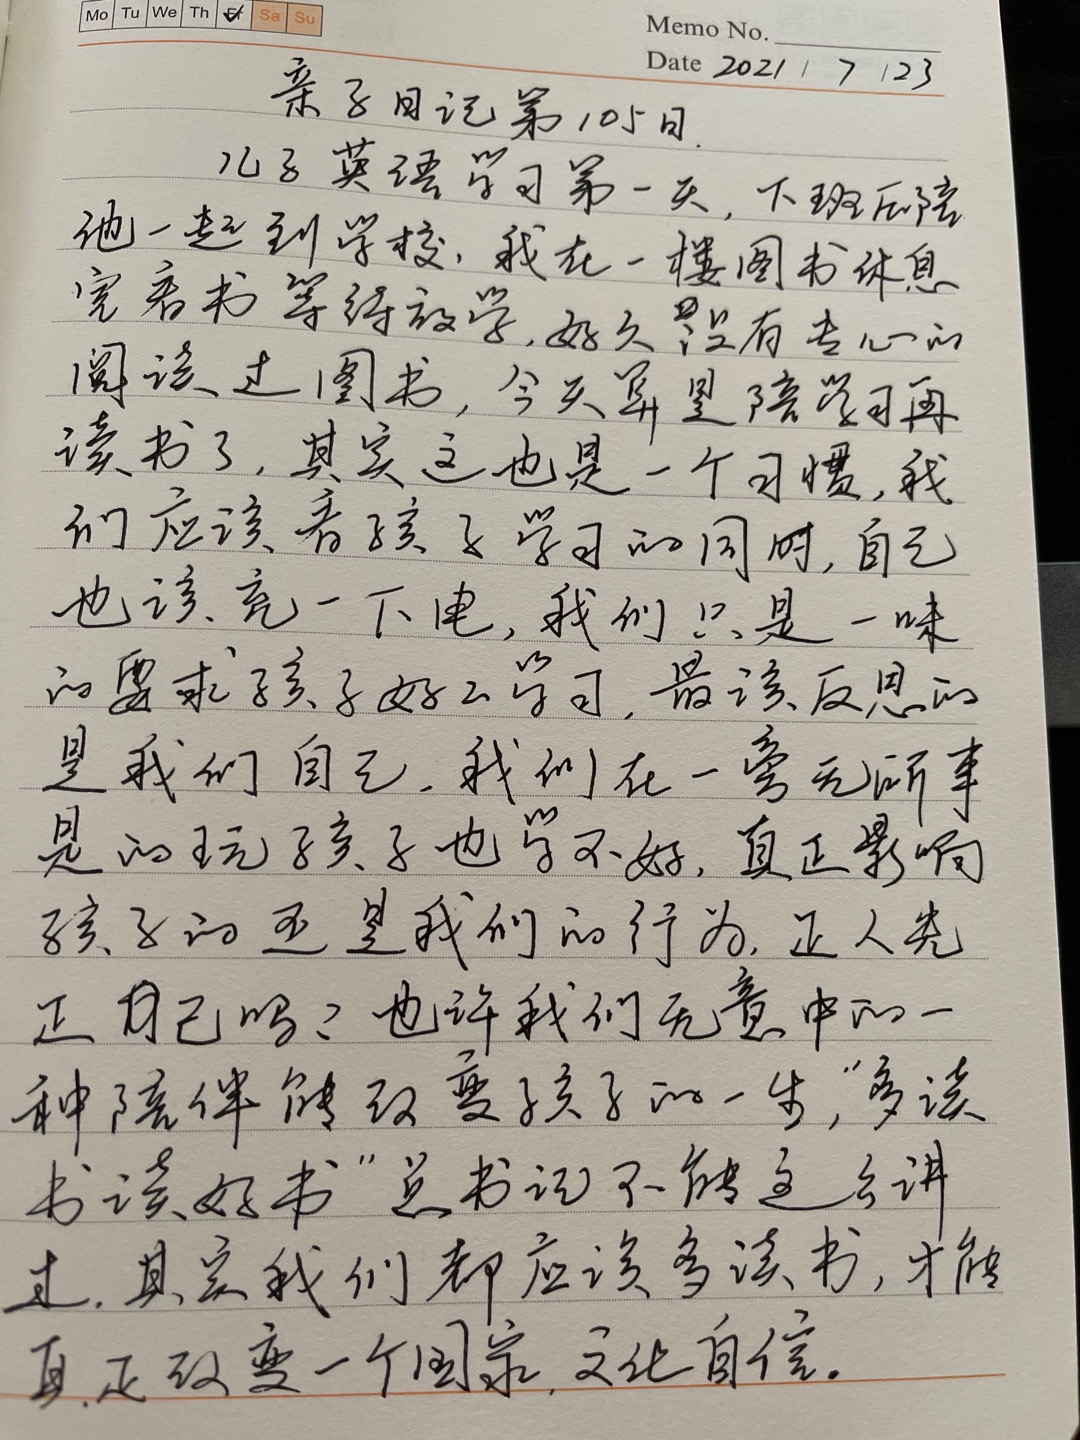 Mo Tu We Th Fr Sa Su
Memo No.
Date 2021 / 7 / 23
亲子日记第105日.
儿子英语学习第一天,下班后陪
他一起到学校,我在一楼图书休息
室看书等待放学,好久没有专心的
阅读过图书,今天算是陪学习再
读书了,其实这也是一个习惯,我
们应该看孩子学习的同时,自己
也该充一下电,我们只是一味
的要求孩子好好学习,最该反思的
是我们自己,我们在一旁无所事
是的玩孩子也学不好,真正影响
孩子的还是我们的行为,正人先
正自己吗?也许我们无意中的一
种陪伴能改变孩子的一生,"多读
书读好书"总书记不能这么讲
过,其实我们都应该多读书,才能
真正改变一个国家,文化自信。